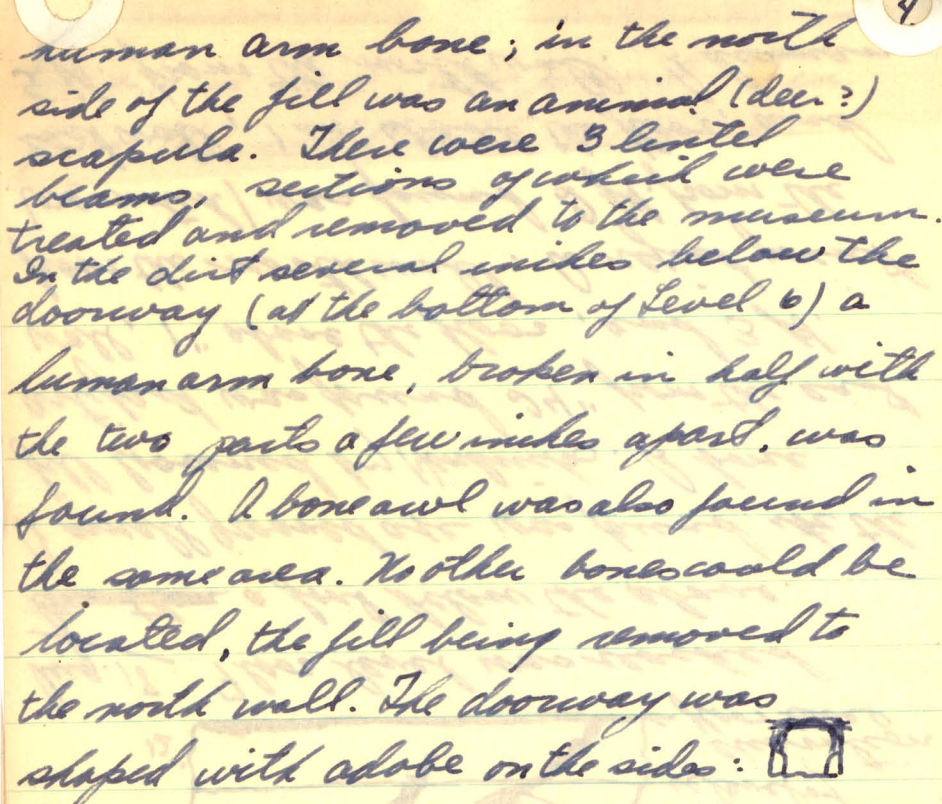 4
human arm bone; in the north
side of the fill was an animal (deer?)
scapula. There were 3 lintel
beams, sections of which were
treated and removed to the museum.
In the dirt several inches below the
doorway (at the bottom of Level 6) a
human arm bone, broken in half with
the two parts a few inches apart, was
found. A bone awl was also found in
the same area. No other bones could be
located, the fill being removed to
the north wall. The doorway was
shaped with adobe on the sides: